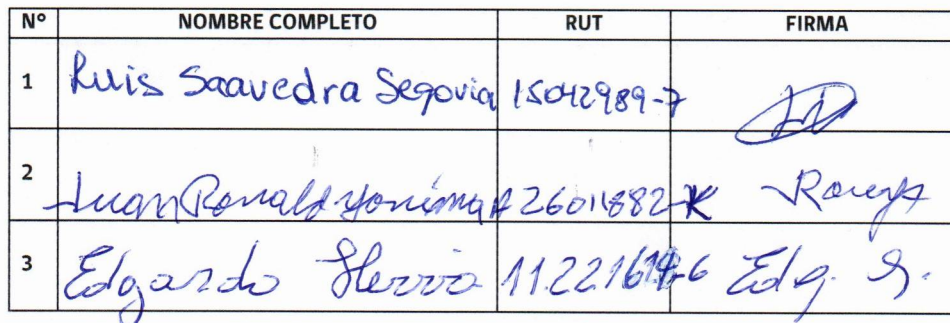 N° NOMBRE COMPLETO RUT FIRMA
1 Luis Saavedra Segovia 15042989-7
2 Juan Ronald 26011882-K
3 Edgardo 11.221 -6 Edg. S.